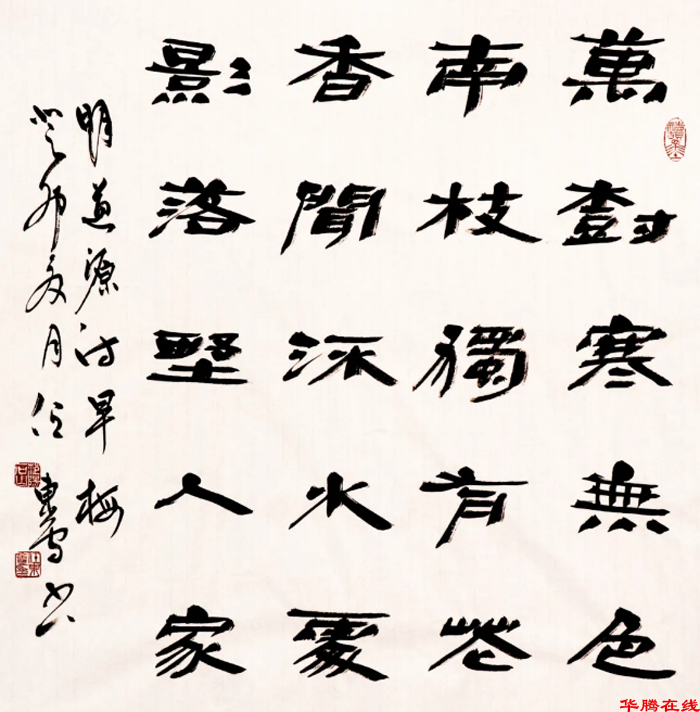 萬樹寒無色
南枝獨有花
香聞流水處
影落野人家
明道源诗早梅
癸卯夏月任東雪书
华腾在线